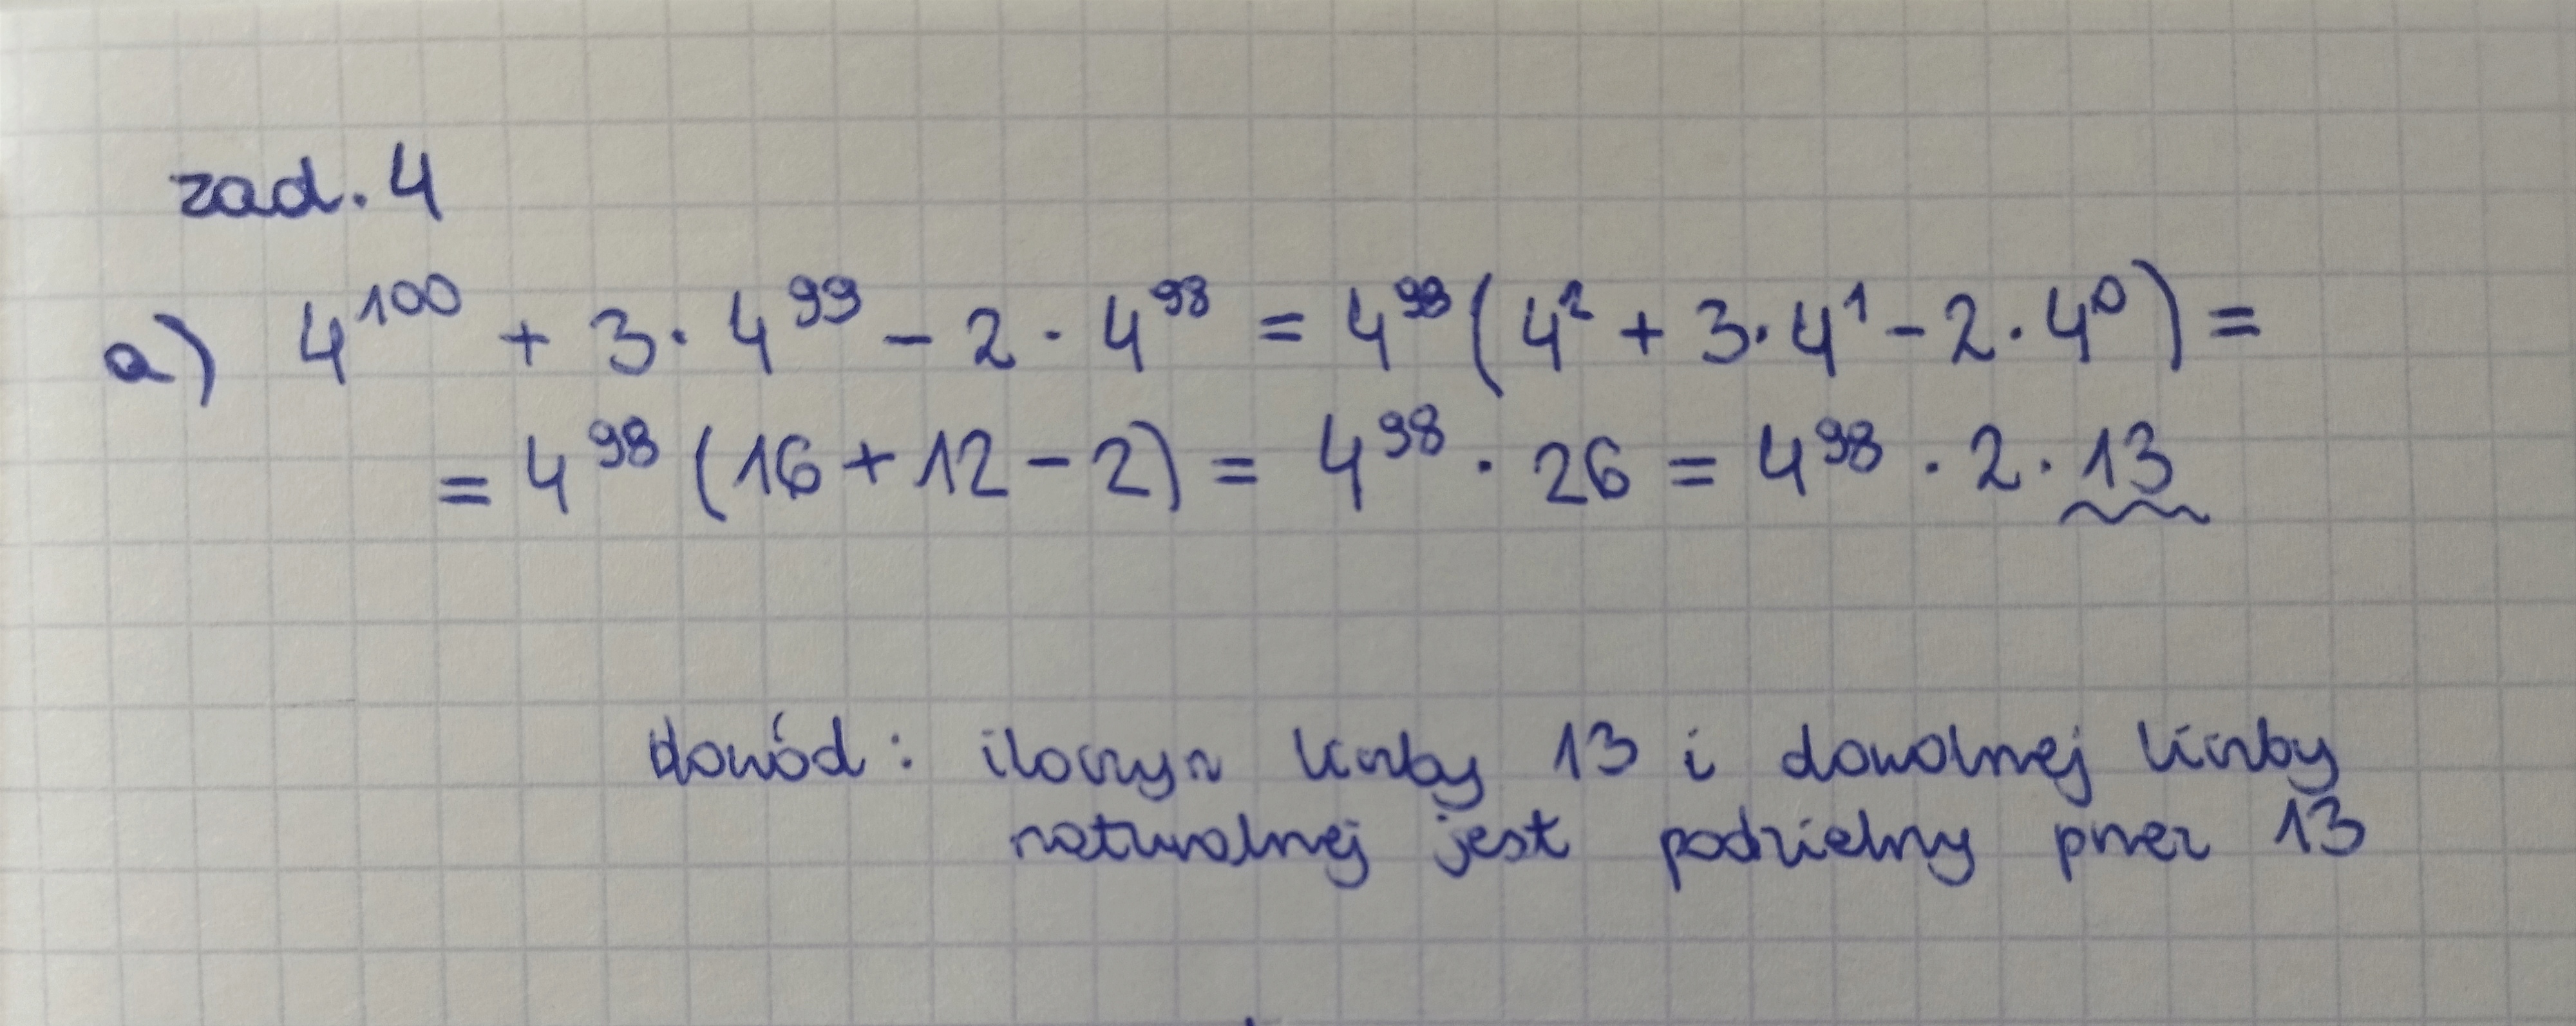 zad. 4
a) 4¹⁰⁰ + 3 · 4⁹⁹ - 2 · 4⁹⁸ = 4⁹⁸ (4² + 3 · 4¹ - 2 · 4⁰) =
= 4⁹⁸ (16 + 12 - 2) = 4⁹⁸ · 26 = 4⁹⁸ · 2 · 13
dowód : iloczyn liczby 13 i dowolnej liczby
naturalnej jest podzielny przez 13